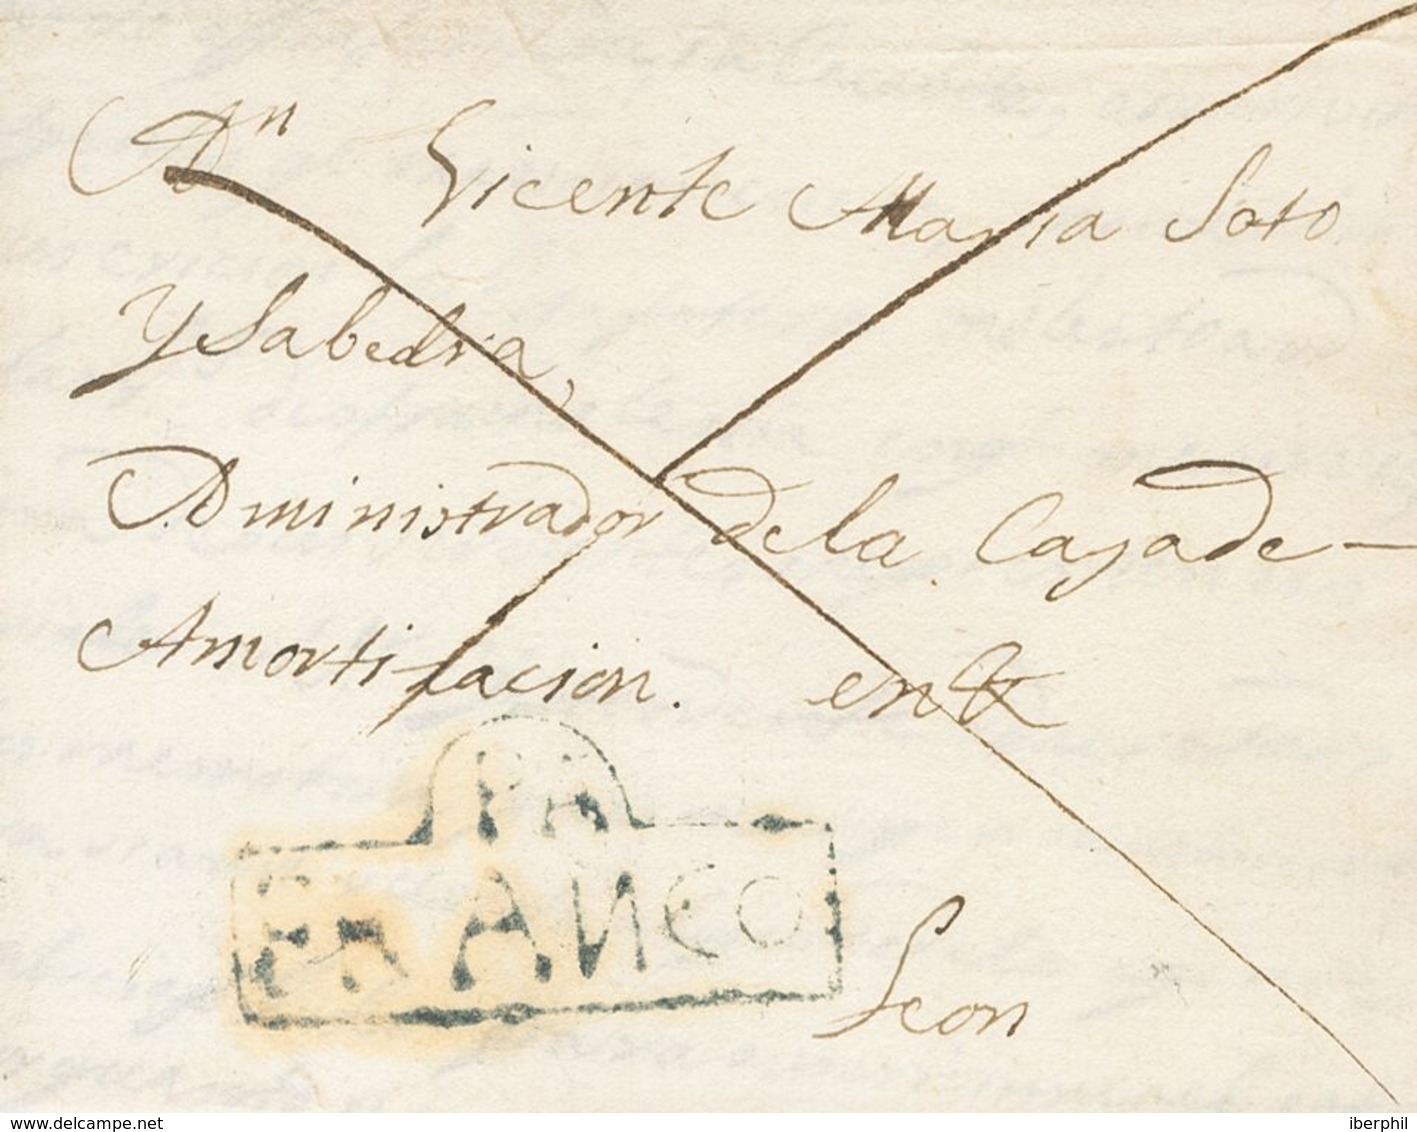 Dn Vicente Maria Soto
y Sabedra,
Administrador de la Caja de
Amortifacion. en
PA
FRANCO
Leon
delcampe.net
iberphil